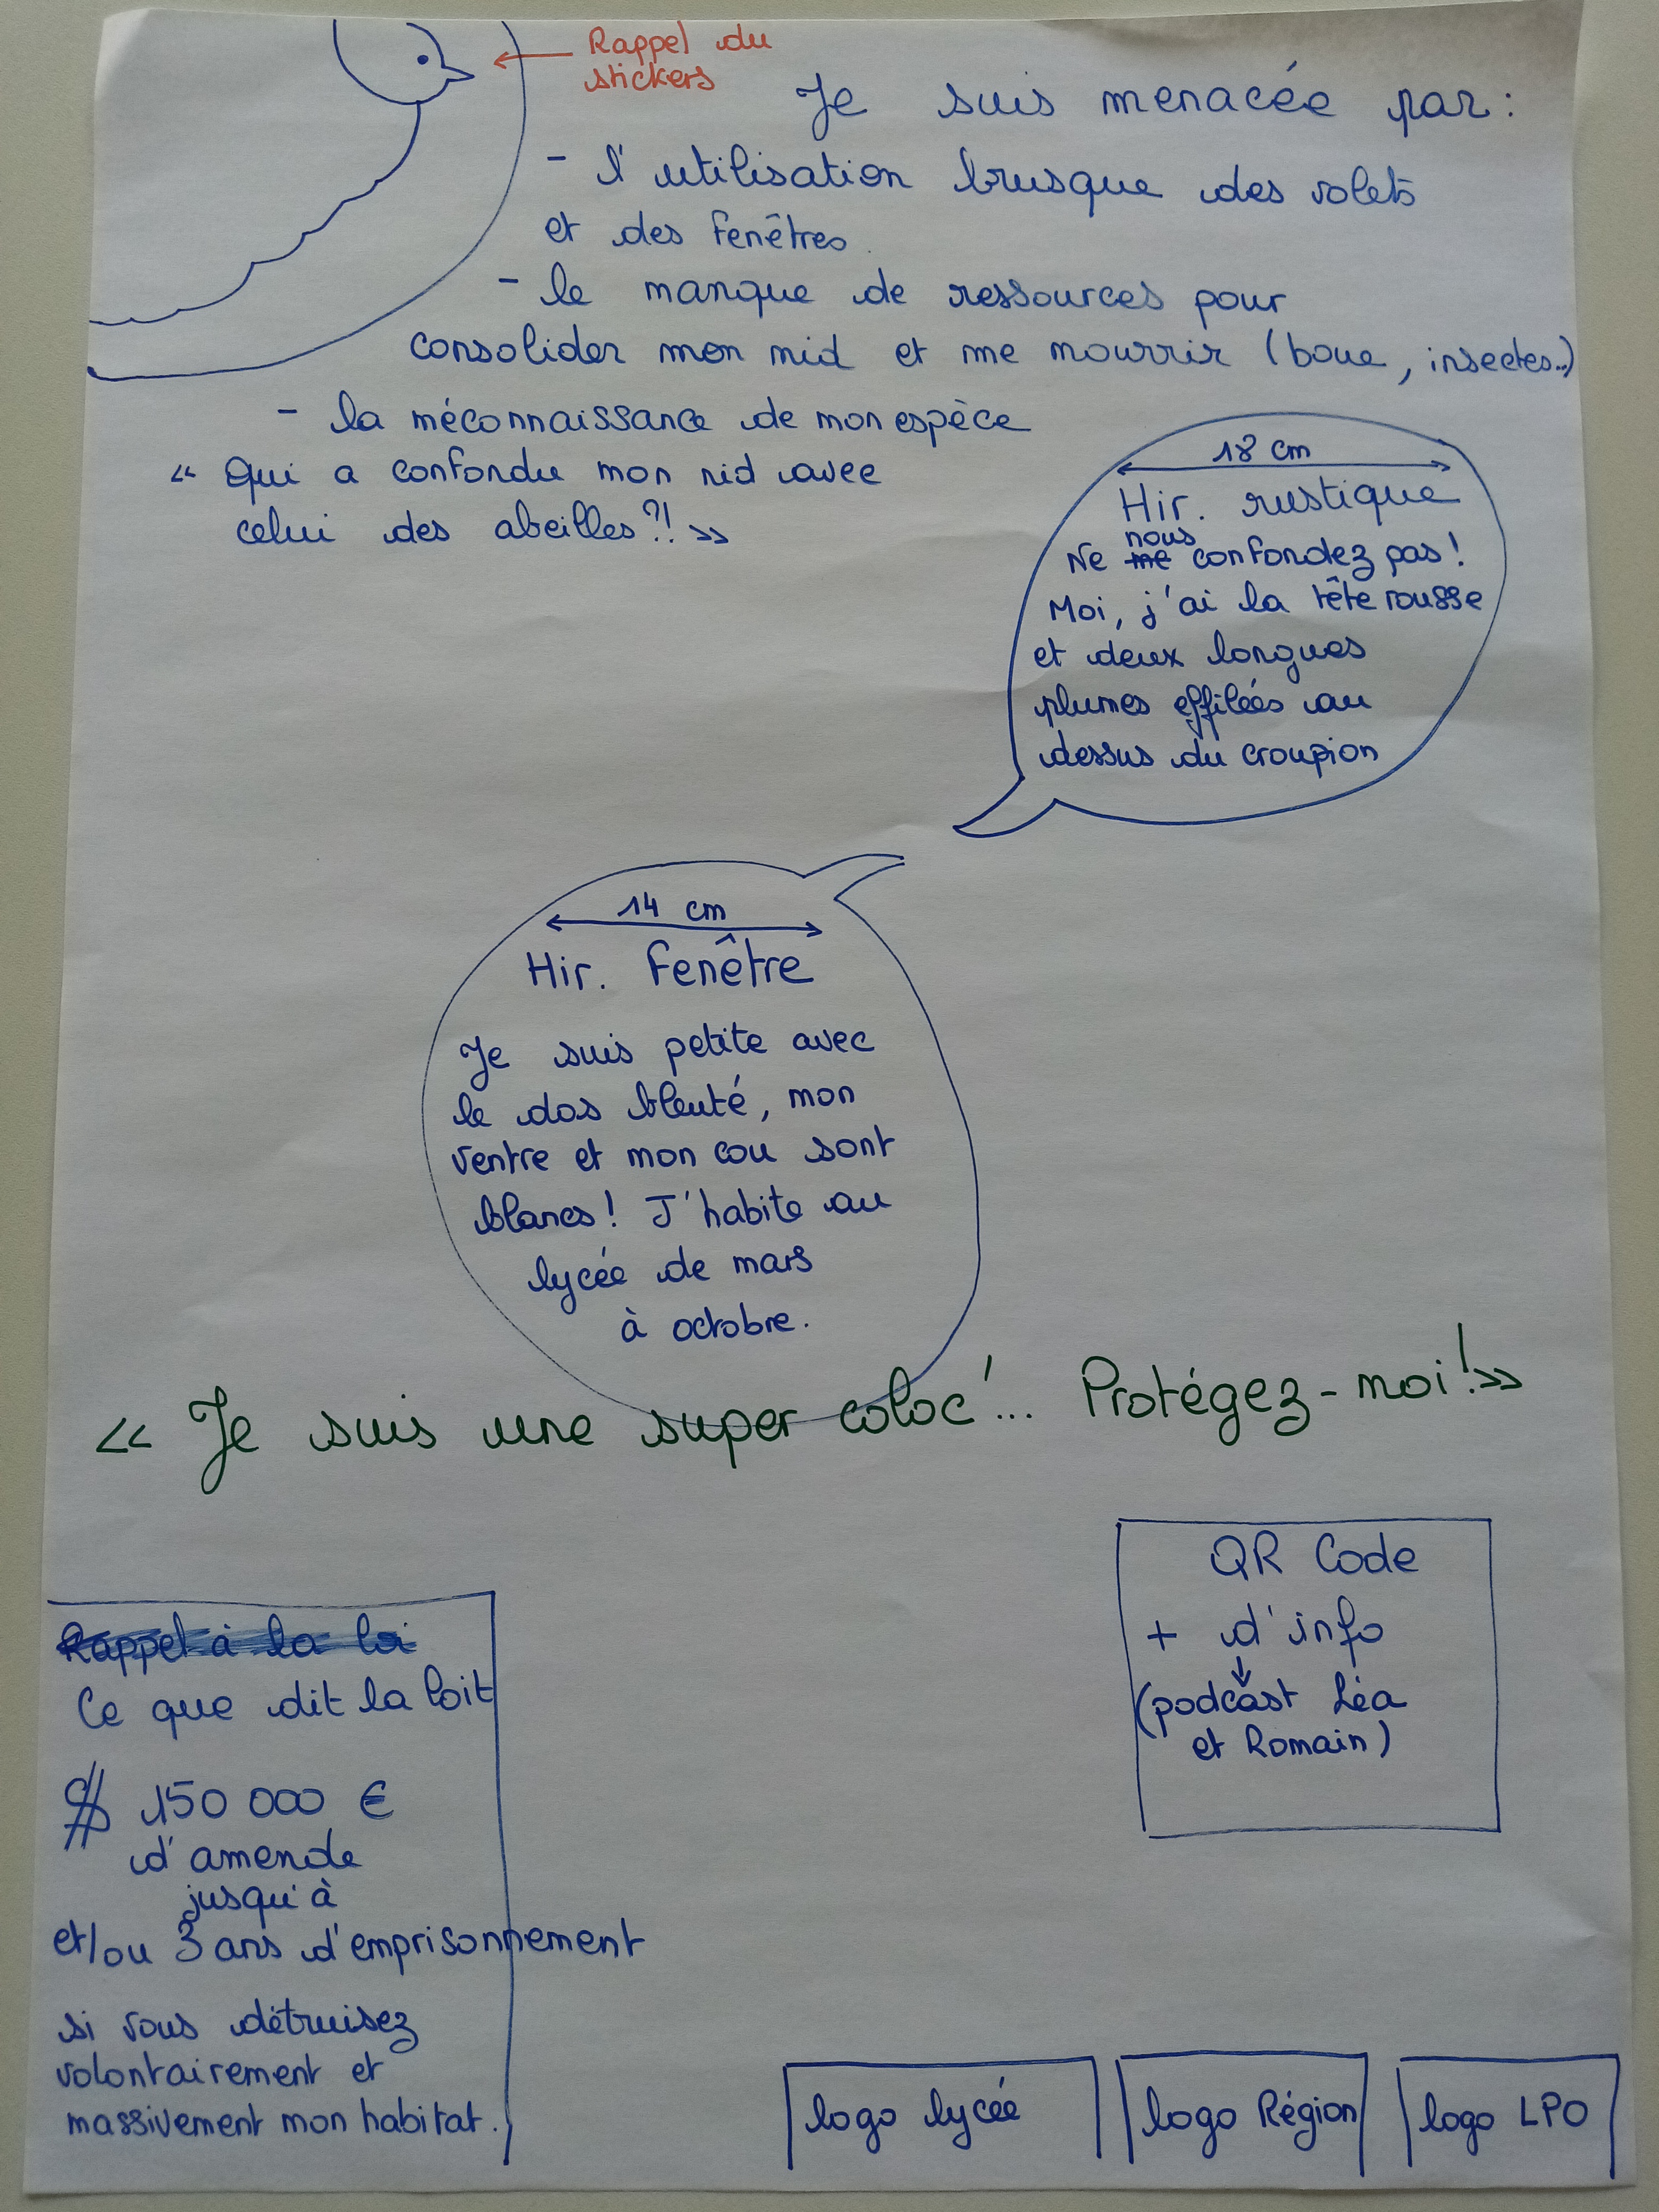 Rappel du
stickers
Je suis menacée par :
- l'utilisation brusque des volets
et des fenêtres.
- le manque de ressources pour
consolider mon nid et me nourrir (boue, insectes...)
- la méconnaissance de mon espèce
« Qui a confondu mon nid avec
celui des abeilles ?! »
18 cm
Hir. rustique
nous
Ne me confondez pas !
Moi, j'ai la tête rousse
et deux longues
plumes effilées au
dessus du croupion
14 cm
Hir. Fenêtre
Je suis petite avec
le dos bleuté, mon
ventre et mon cou sont
blancs ! J'habite au
lycée de mars
à octobre.
« Je suis une super coloc'... Protégez-moi ! »
QR Code
+ d'info
(podcast Léa
et Romain)
Rappel à la loi
Ce que dit la loit
$ 150 000 €
d'amende
jusqu'à
et/ou 3 ans d'emprisonnement
si vous détruisez
volontairement et
massivement mon habitat.
logo lycée
logo Région
logo LPO